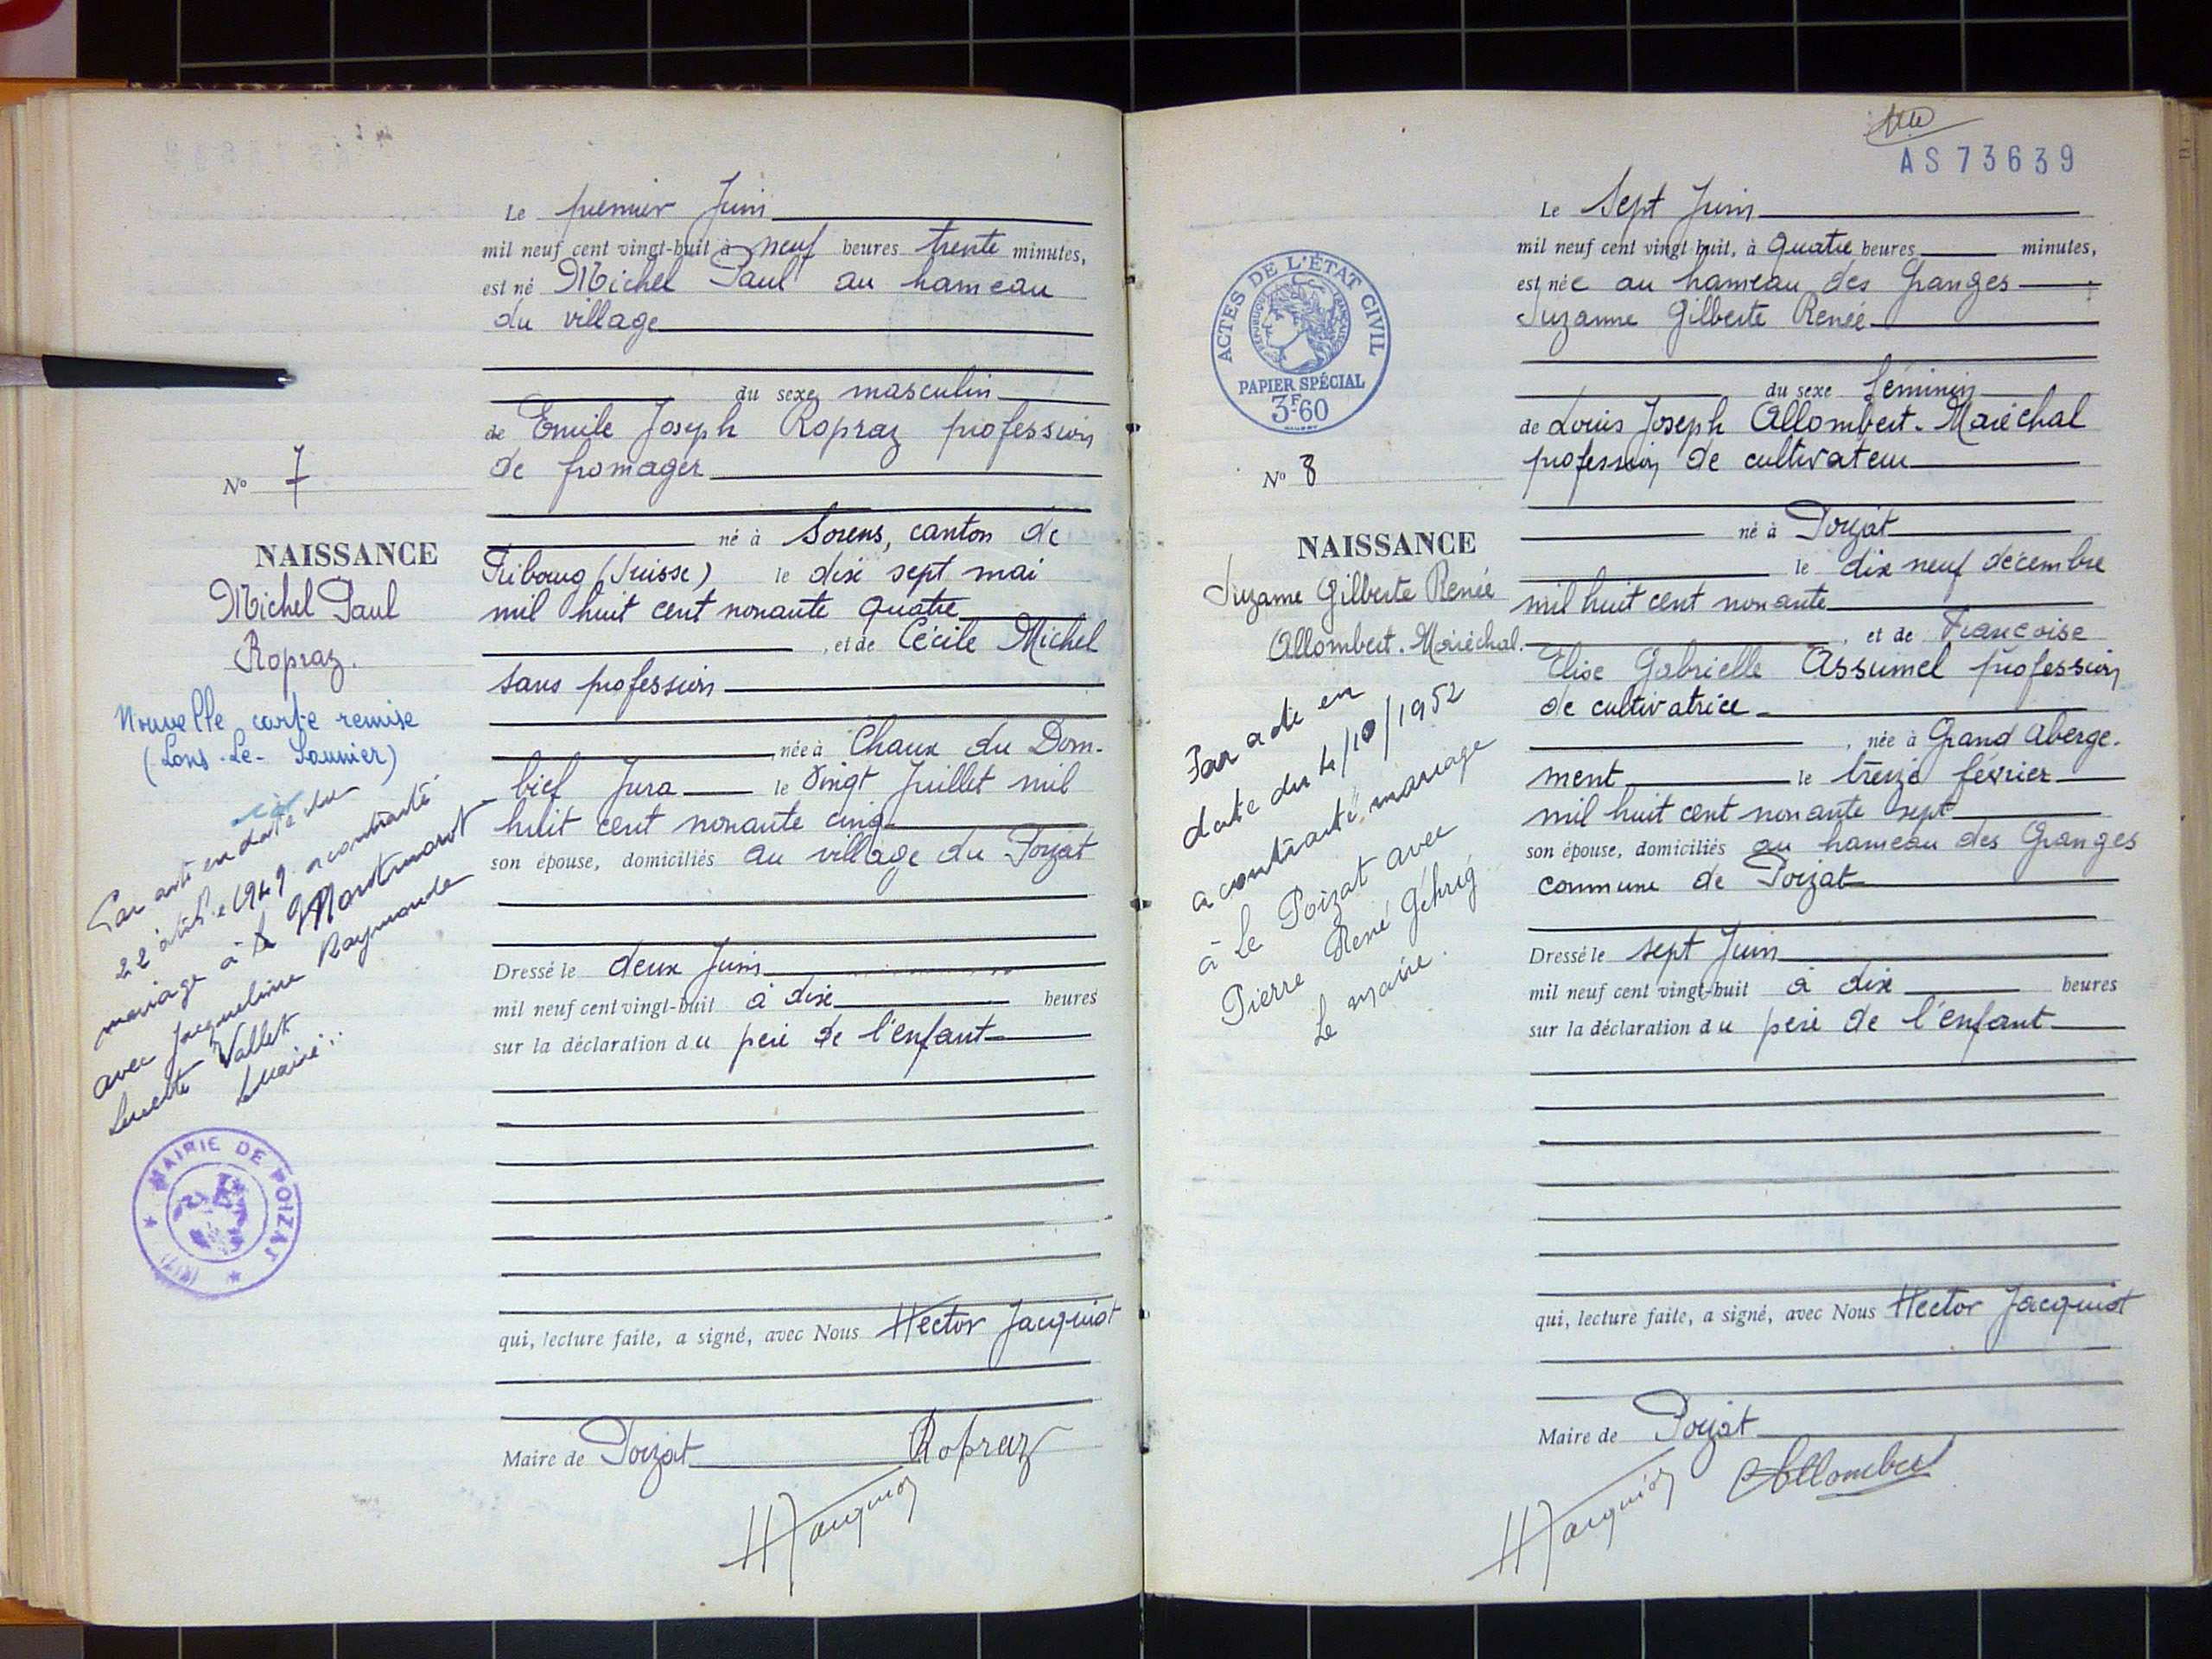 Le premier Juin
mil neuf cent vingt-huit à neuf heures trente minutes,
est né Michel Paul au hameau
du village
du sexe masculin
de Emile Joseph Ropraz profession
de fromager
né à Sorens, canton de
Fribourg (Suisse) le dix sept mai
mil huit cent nonante quatre
, et de Cécile Michel
sans profession
, née à Chaux du Dom-
bief Jura le vingt Juillet mil
huit cent nonante cinq
son épouse, domiciliés au village du Poizat
Dressé le deux Juin
mil neuf cent vingt-huit à dix heures
sur la déclaration du père de l'enfant
qui, lecture faite, a signé, avec Nous Hector Jacquiot
Maire de Poizat
Ropraz
HJacquiot
N° 7
NAISSANCE
Michel Paul
Ropraz.
Nouvelle carte remise
(Lons-Le-Saunier)
Par acte en date du
22 1949 a contracté
mariage à
avec Jacqueline Raymonde
Lucette Vallet
Le maire
MAIRIE DE POIZAT
AS 73639
Le Sept Juin
mil neuf cent vingt-huit, à quatre heures minutes,
est née au hameau des Granges
Suzanne Gilberte Renée
du sexe féminin
de Louis Joseph Allombert-Maréchal
profession de cultivateur
né à Poizat
le dix neuf décembre
mil huit cent nonante
, et de Françoise
Elise Gabrielle Assumel profession
de cultivatrice
, née à Grand Aberge-
ment le treize février
mil huit cent nonante sept
son épouse, domiciliés au hameau des Granges
commune de Poizat
Dressé le sept Juin
mil neuf cent vingt-huit à dix heures
sur la déclaration du père de l'enfant
qui, lecture faite, a signé, avec Nous Hector Jacquiot
Maire de Poizat
HJacquiot
Allombert
ACTES DE L'ÉTAT CIVIL
RÉPUBLIQUE FRANÇAISE
PAPIER SPÉCIAL
3F.60
N° 8
NAISSANCE
Suzanne Gilberte Renée
Allombert-Maréchal.
Par acte en
date du 4/10/1952
a contracté mariage
à Le Poizat avec
Pierre René Géhrig
Le maire.